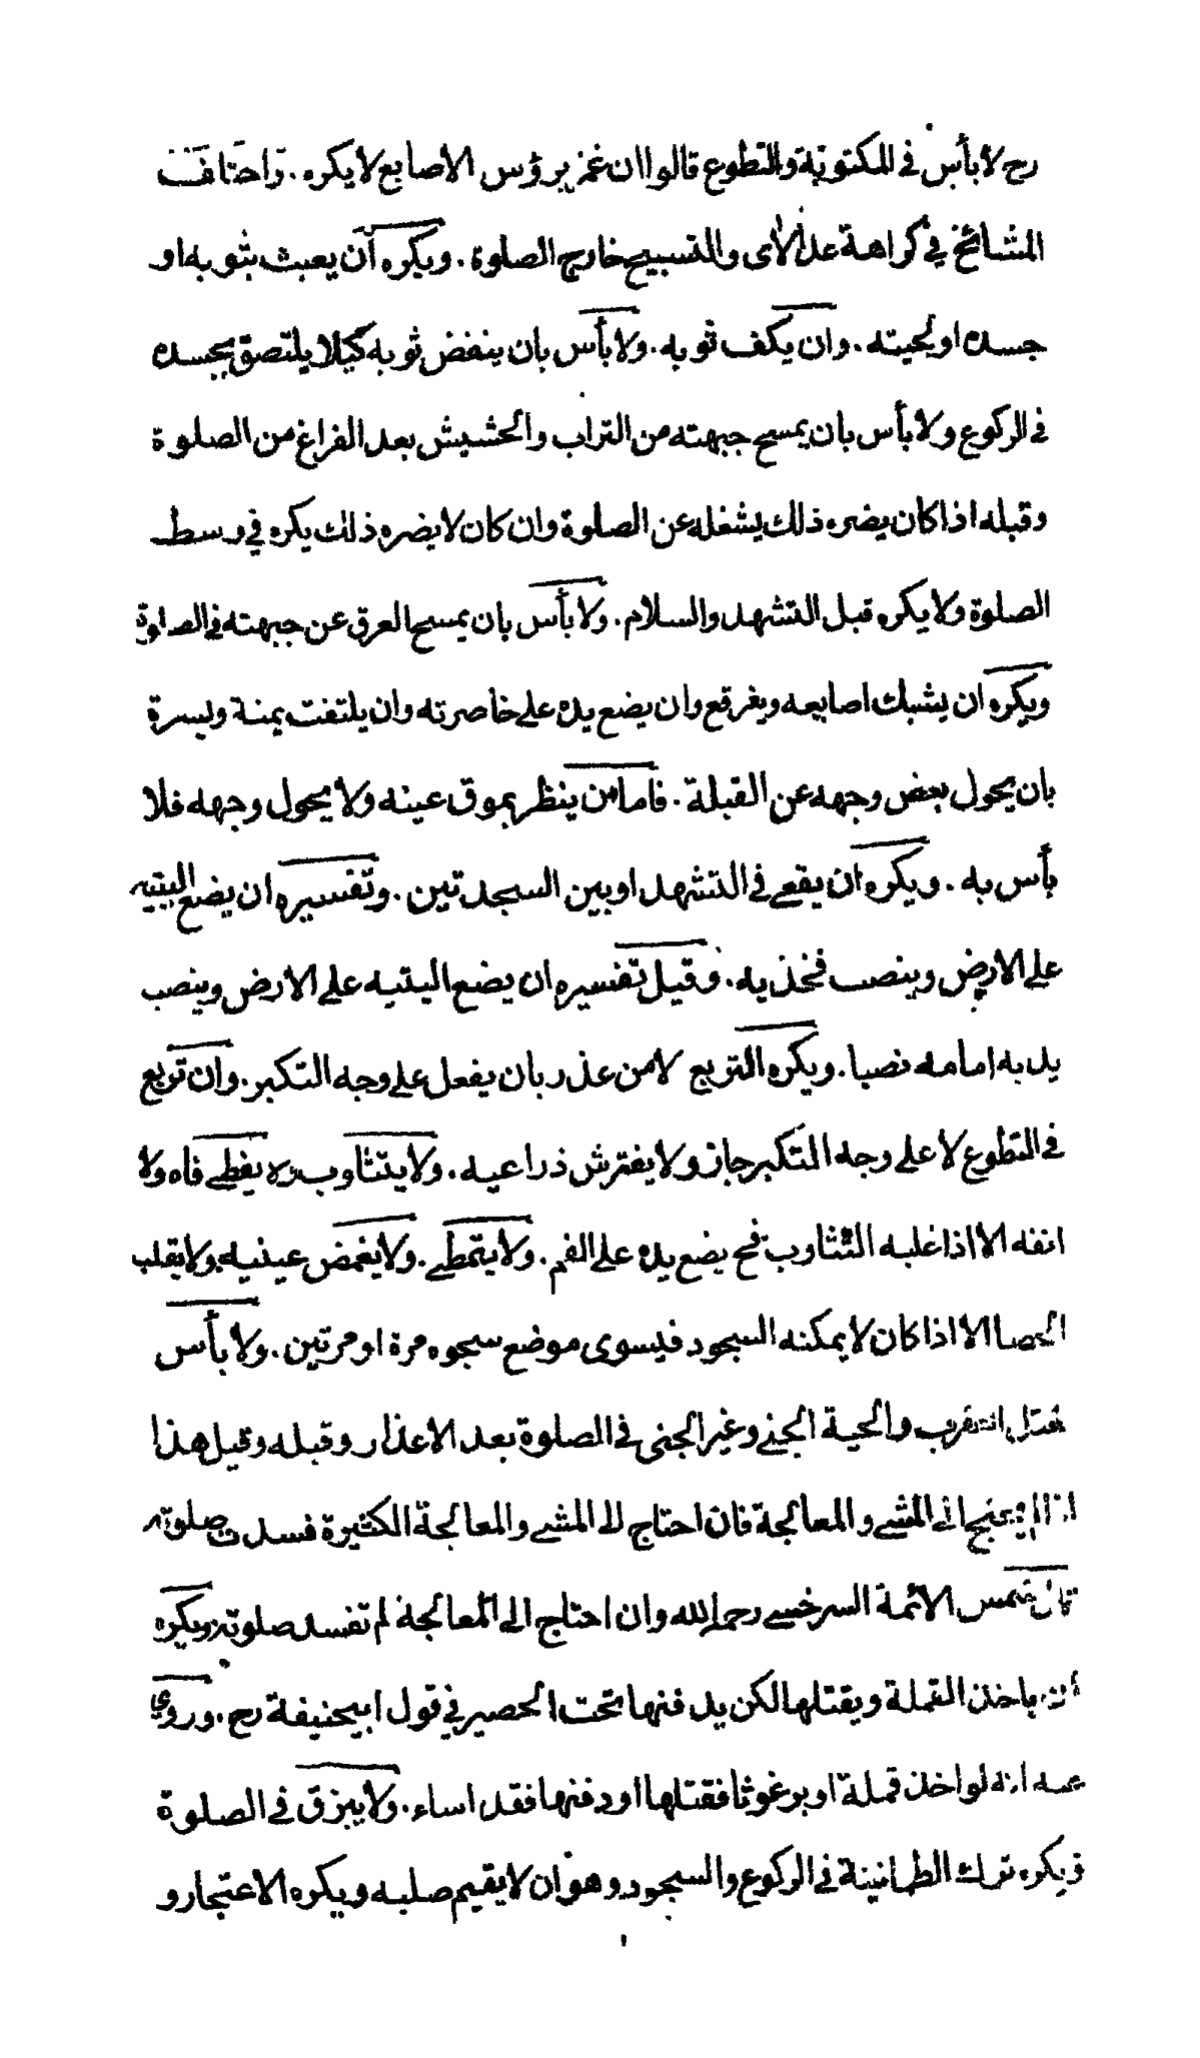 رح لا بأس في المكتوبة والتطوع قالوا ان غمز برؤس الاصابع لا يكره . واختلف
المشائخ في كراهة عد الاى والتسبيح خارج الصلوة . ويكره أن يعبث بثوبه او
جسده او لحيته . وان يكف ثوبه . ولا بأس بان ينفض ثوبه كيلا يلتصق بجسده
في الركوع ولا بأس بان يمسح جبهته من التراب والحشيش بعد الفراغ من الصلوة
وقبله اذا كان يضره ذلك يشغله عن الصلوة وان كان لا يضره ذلك يكره في وسط
الصلوة ولا يكره قبل التشهد والسلام . ولا بأس بان يمسح العرق عن جبهته في الصلوة
ويكره ان يشبك اصابعه ويفرقع وان يضع يده على خاصرته وان يلتفت يمنة ويسرة
بان يحول بعض وجهه عن القبلة . فاما من ينظر بموق عينه ولا يحول وجهه فلا
بأس به . ويكره ان يقعى في التشهد او بين السجدتين . وتفسيره ان يضع اليتيه
على الارض وينصب فخذيه . وقيل تفسيره ان يضع اليتيه على الارض وينصب
يديه امامه نصبا . ويكره التربع لا من عذر بان يفعل على وجه التكبر . وان تربع
في التطوع لا على وجه التكبر جاز ولا يفترش ذراعيه . ولا يتثاوب ولا يغطى فاه ولا
انفه الا اذا غلبه التثاوب فح يضع يده على الفم . ولا يتمطى . ولا يغمض عينيه ولا يقلب
الحصا الا اذا كان لا يمكنه السجود فيسوى موضع سجوه مرة او مرتين . ولا بأس
بقتل العقرب والحية الجنى وغير الجنى في الصلوة بعد الاعذار وقبله وقيل هذا
اذا لم يحتج الى المشى والمعالجة فان احتاج الى المشى والمعالجة الكثيرة فسدت صلوته
قال شمس الائمة السرخسى رحمه الله وان احتاج الى المعالجة لم تفسد صلوته ويكره
ان ياخذ القملة ويقتلها لكن يدفنها تحت الحصير في قول ابيحنيفة رح . وروى
عنه انه لو اخذ قملة او برغوثا فقتلها او دفنها فقد اساء . ولا يبزق في الصلوة
ويكره ترك الطمانينة في الركوع والسجود وهو ان لا يقيم صلبه ويكره الاعتجار و